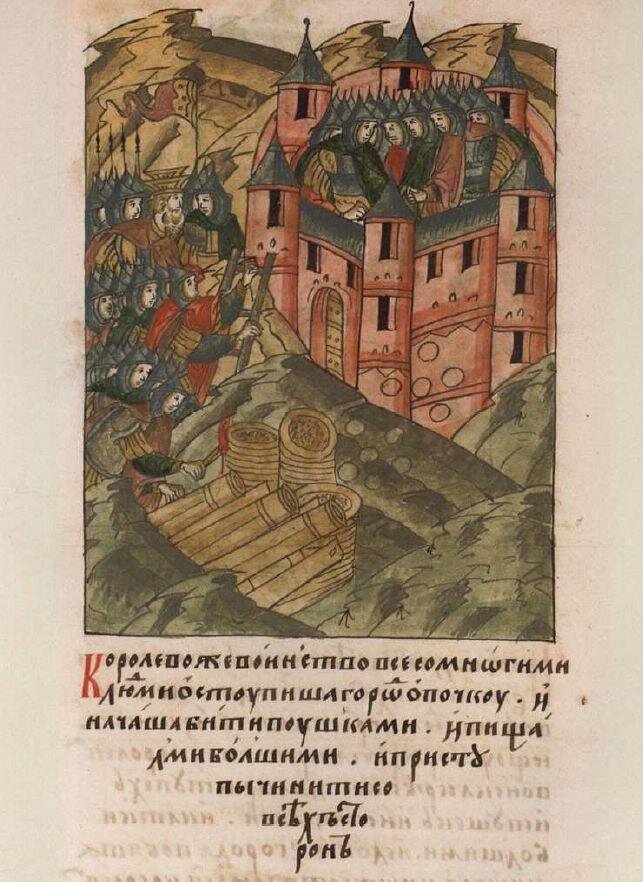 Королевожевоиньствовсесомнѡгими
людмиостоупишагорѡⷣопочкоу. и
начашабитипоушками. ипища
лмиболшими. ипристу
пычинитисо
всѣхъсто
ронъ